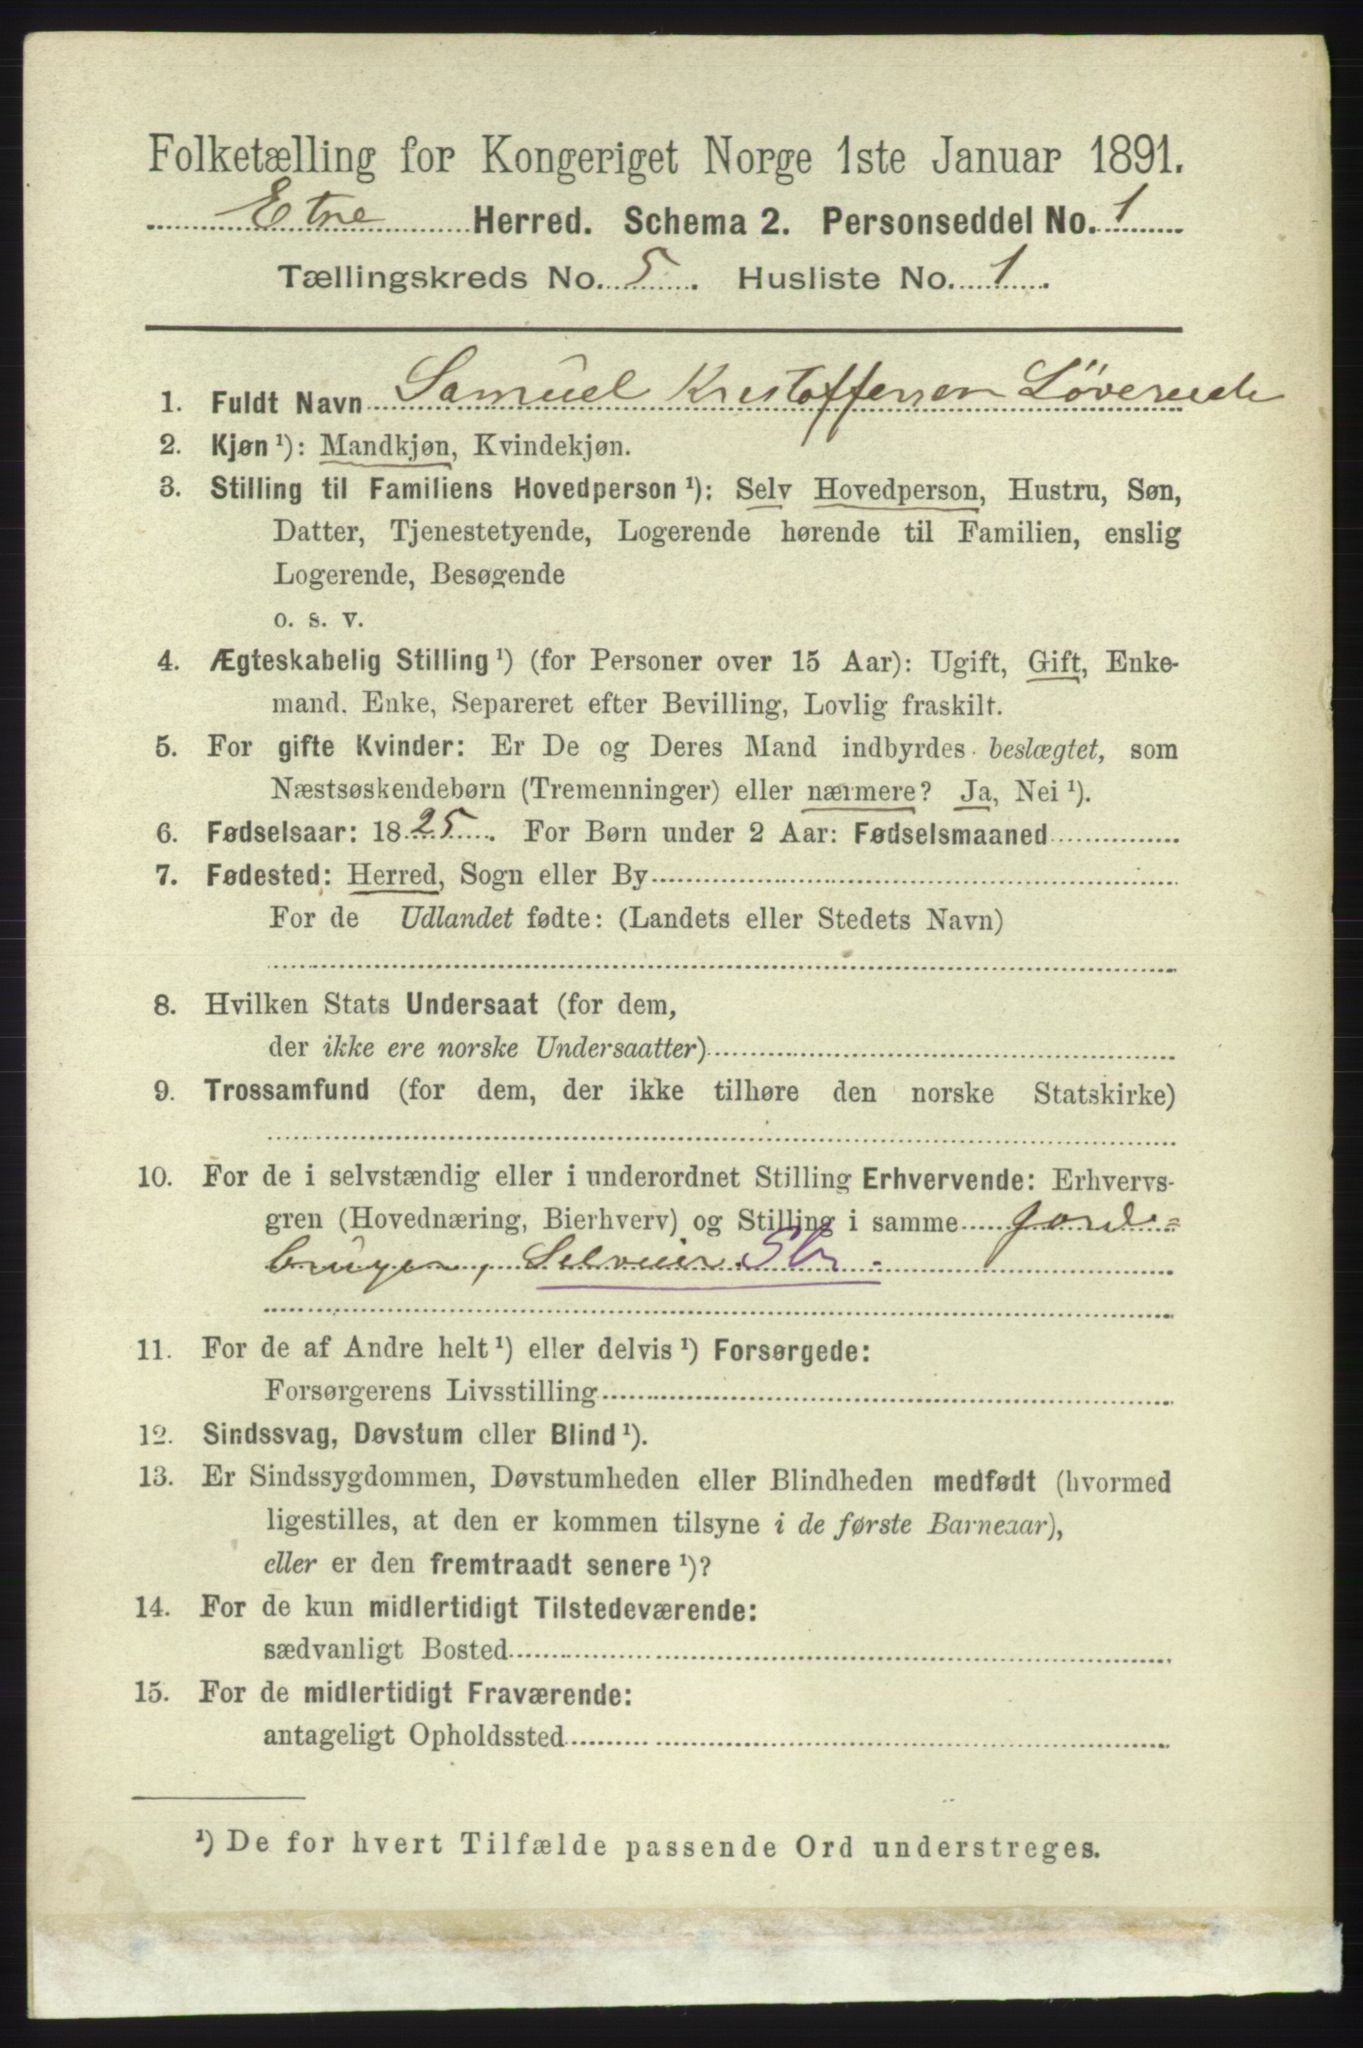 Folketælling for Kongeriget Norge 1ste Januar 1891.
Etne Herred. Schema 2. Personseddel No. 1
Tællingskreds No. 5. Husliste No. 1.
1. Fuldt Navn Samuel Kristoffersen
2. Kjøn ¹): Mandkjøn, Kvindekjøn.
3. Stilling til Familiens Hovedperson ¹): Selv Hovedperson, Hustru, Søn,
Datter, Tjenestetyende, Logerende hørende til Familien, enslig
Logerende, Besøgende
o. s. v.
4. Ægteskabelig Stilling ¹) (for Personer over 15 Aar): Ugift, Gift, Enke-
mand. Enke, Separeret efter Bevilling, Lovlig fraskilt.
5. For gifte Kvinder: Er De og Deres Mand indbyrdes beslægtet, som
Næstsøskendebørn (Tremenninger) eller nærmere? Ja, Nei ¹).
6. Fødselsaar: 1825. For Børn under 2 Aar: Fødselsmaaned
7. Fødested: Herred, Sogn eller By
For de Udlandet fødte: (Landets eller Stedets Navn)
8. Hvilken Stats Undersaat (for dem,
der ikke ere norske Undersaatter)
9. Trossamfund (for dem, der ikke tilhøre den norske Statskirke)
10. For de i selvstændig eller i underordnet Stilling Erhvervende: Erhvervs-
gren (Hovednæring, Bierhverv) og Stilling i samme Jord=
bruger, Selveier
11. For de af Andre helt ¹) eller delvis ¹) Forsørgede:
Forsørgerens Livsstilling
12. Sindssvag, Døvstum eller Blind ¹).
13. Er Sindssygdommen, Døvstumheden eller Blindheden medfødt (hvormed
ligestilles, at den er kommen tilsyne i de første Barneaar),
eller er den fremtraadt senere ¹)?
14. For de kun midlertidigt Tilstedeværende:
sædvanligt Bosted
15. For de midlertidigt Fraværende:
antageligt Opholdssted
¹) De for hvert Tilfælde passende Ord understreges.